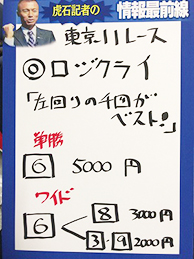 虎石記者の
情報最前線
東京11レース
◎ロジクライ
「左回りの千四が
ベスト!」
単勝
6 5000円
ワイド
6 8 3000円
3・9 2000円